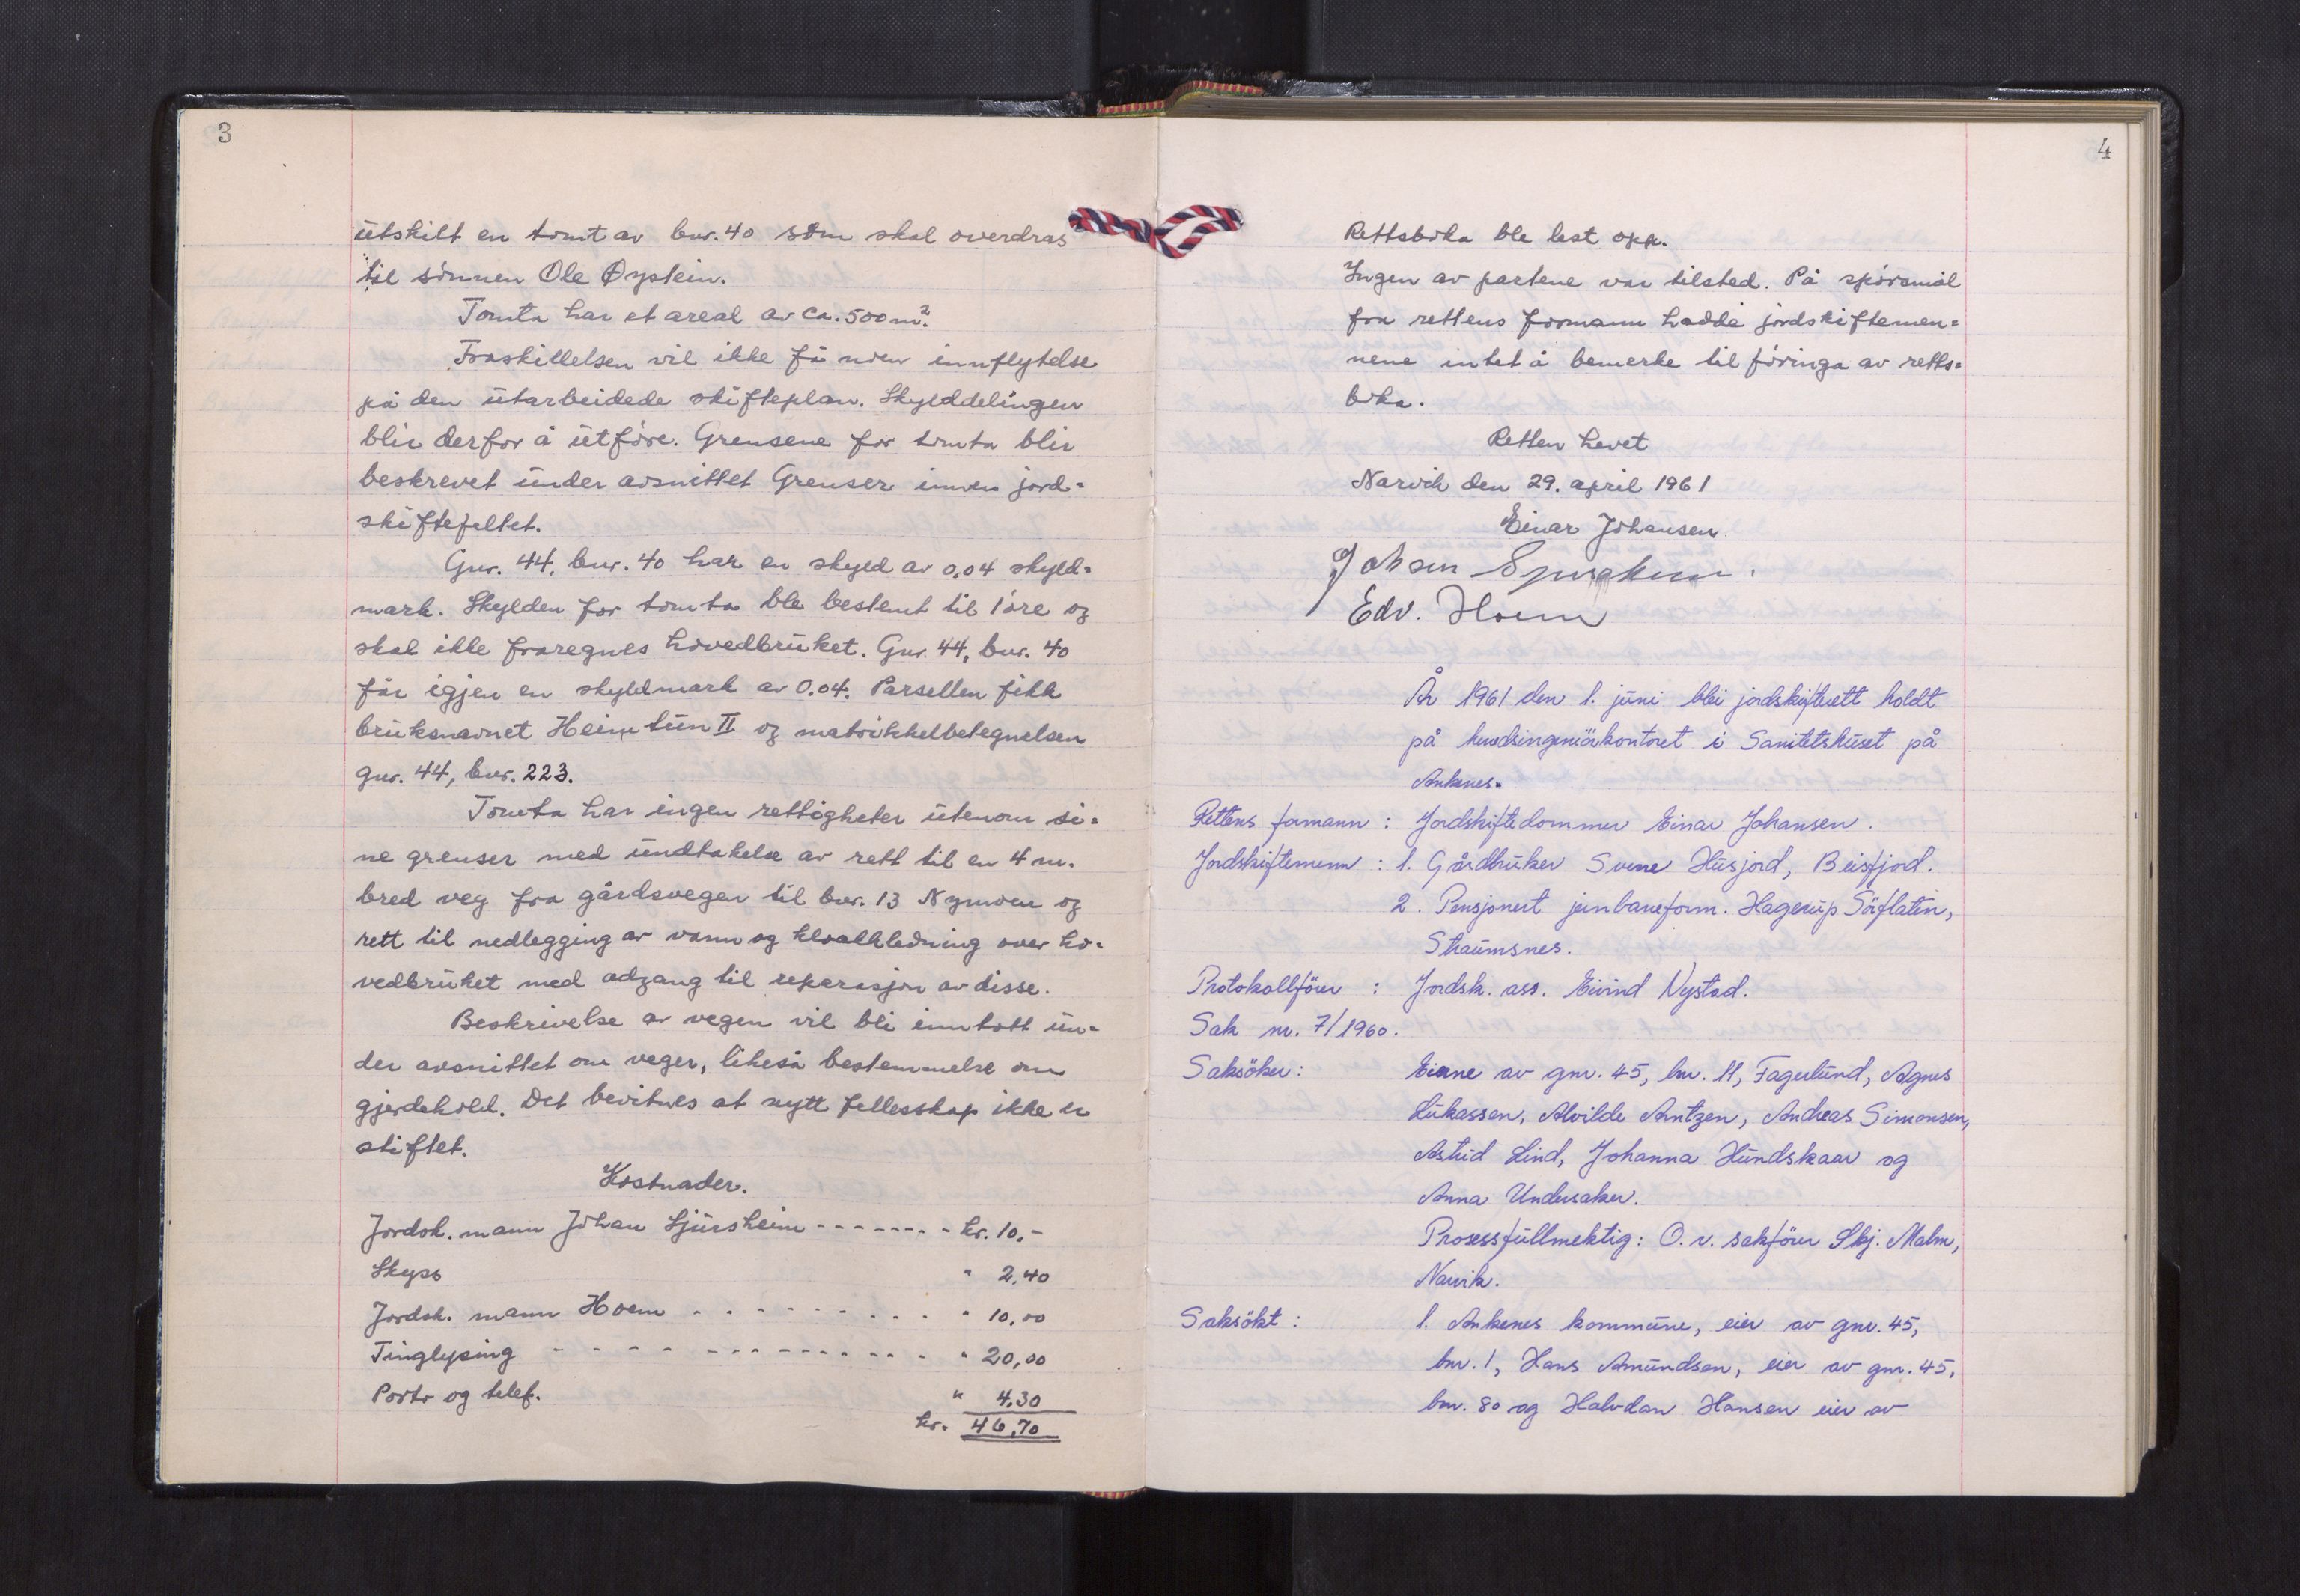 3
utskilt en tomt av bnr. 40 som skal overdras
til sönnen Ole Øystein.
Tomta har et areal av ca. 500 m².
Fraskillelsen vil ikke få noen innflytelse
på den utarbeidede skifteplan. Skylddelingen
blir derfor å utföre. Grensene for tomta blir
beskrevet under avsnittet Grenser innen jord=
skiftefeltet.
Gnr. 44, bnr. 40 har en skyld av 0,04 skyld=
mark. Skylden for tomta ble bestemt til 1 öre og
skal ikke fraregnes hovedbruket. Gnr. 44, bnr. 40
får igjen en skyldmark av 0.04. Parsellen fikk
bruksnavnet Heimtun II og matrikkelbetegnelsen
gnr. 44, bnr. 223.
Tomta har ingen rettigheter utenom si=
ne grenser med undtakelse av rett til en 4 m.
bred veg fra gårdsvegen til bnr. 13 Nymoen og
rett til nedlegging av vann og kloakkledning over ho=
vedbruket med adgang til reparasjon av disse.
Beskrivelse av vegen vil bli inntatt un=
der avsnittet om veger, likeså bestemmelse om
gjerdehold. Det bevitnes at nytt fellesskap ikke er
stiftet.
Kostnader.
Jordsk. mann Johan Sjursheim ------- kr. 10.-
Skyss " 2,40
Jordsk. mann Hoem - - - - - - - - - " 10,00
Tinglysing - - - - - - - - - - - - - " 20,00
Porto og telef. " 4,30
kr. 46,70
4
Rettsboka ble lest opp.
Ingen av partene var tilsted. På spörsmål
fra rettens formann hadde jordskiftemen=
nene intet å bemerke til föringa av retts=
boka.
Retten hevet
Narvik den 29. april 1961
Einar Johansen
Johan
Edv. Hoem
År 1961 den 1. juni blei jordskifterett holdt
på herredsingeniörkontoret i Sanitetshuset på
Ankenes.
Rettens formann : Jordskiftedommer Einar Johansen.
Jordskiftemenn : 1. Gårdbruker Sverre Husjord, Beisfjord.
2. Pensjonert jernbaneform. Hagerup Söflaten,
Straumsnes.
Protokollförer : Jordsk. ass. Eivind Nystad.
Sak nr. 7/1960.
Saksöker: Eierne av gnr. 45, bnr. 11, Fagerlund, Agnes
Lukassen, Alvilde Arntzen, Andreas Simonsen,
Astrid Lind, Johanna Hundskaar og
Anna Undersaker.
Prosessfullmektig: O. r. sakförer Skj. Malm,
Narvik.
Saksökt : 1. Ankenes kommune, eier av gnr. 45,
bnr. 1, Hans Amundsen, eier av gnr. 45,
bnr. 80 og Halvdan Hansen eier av